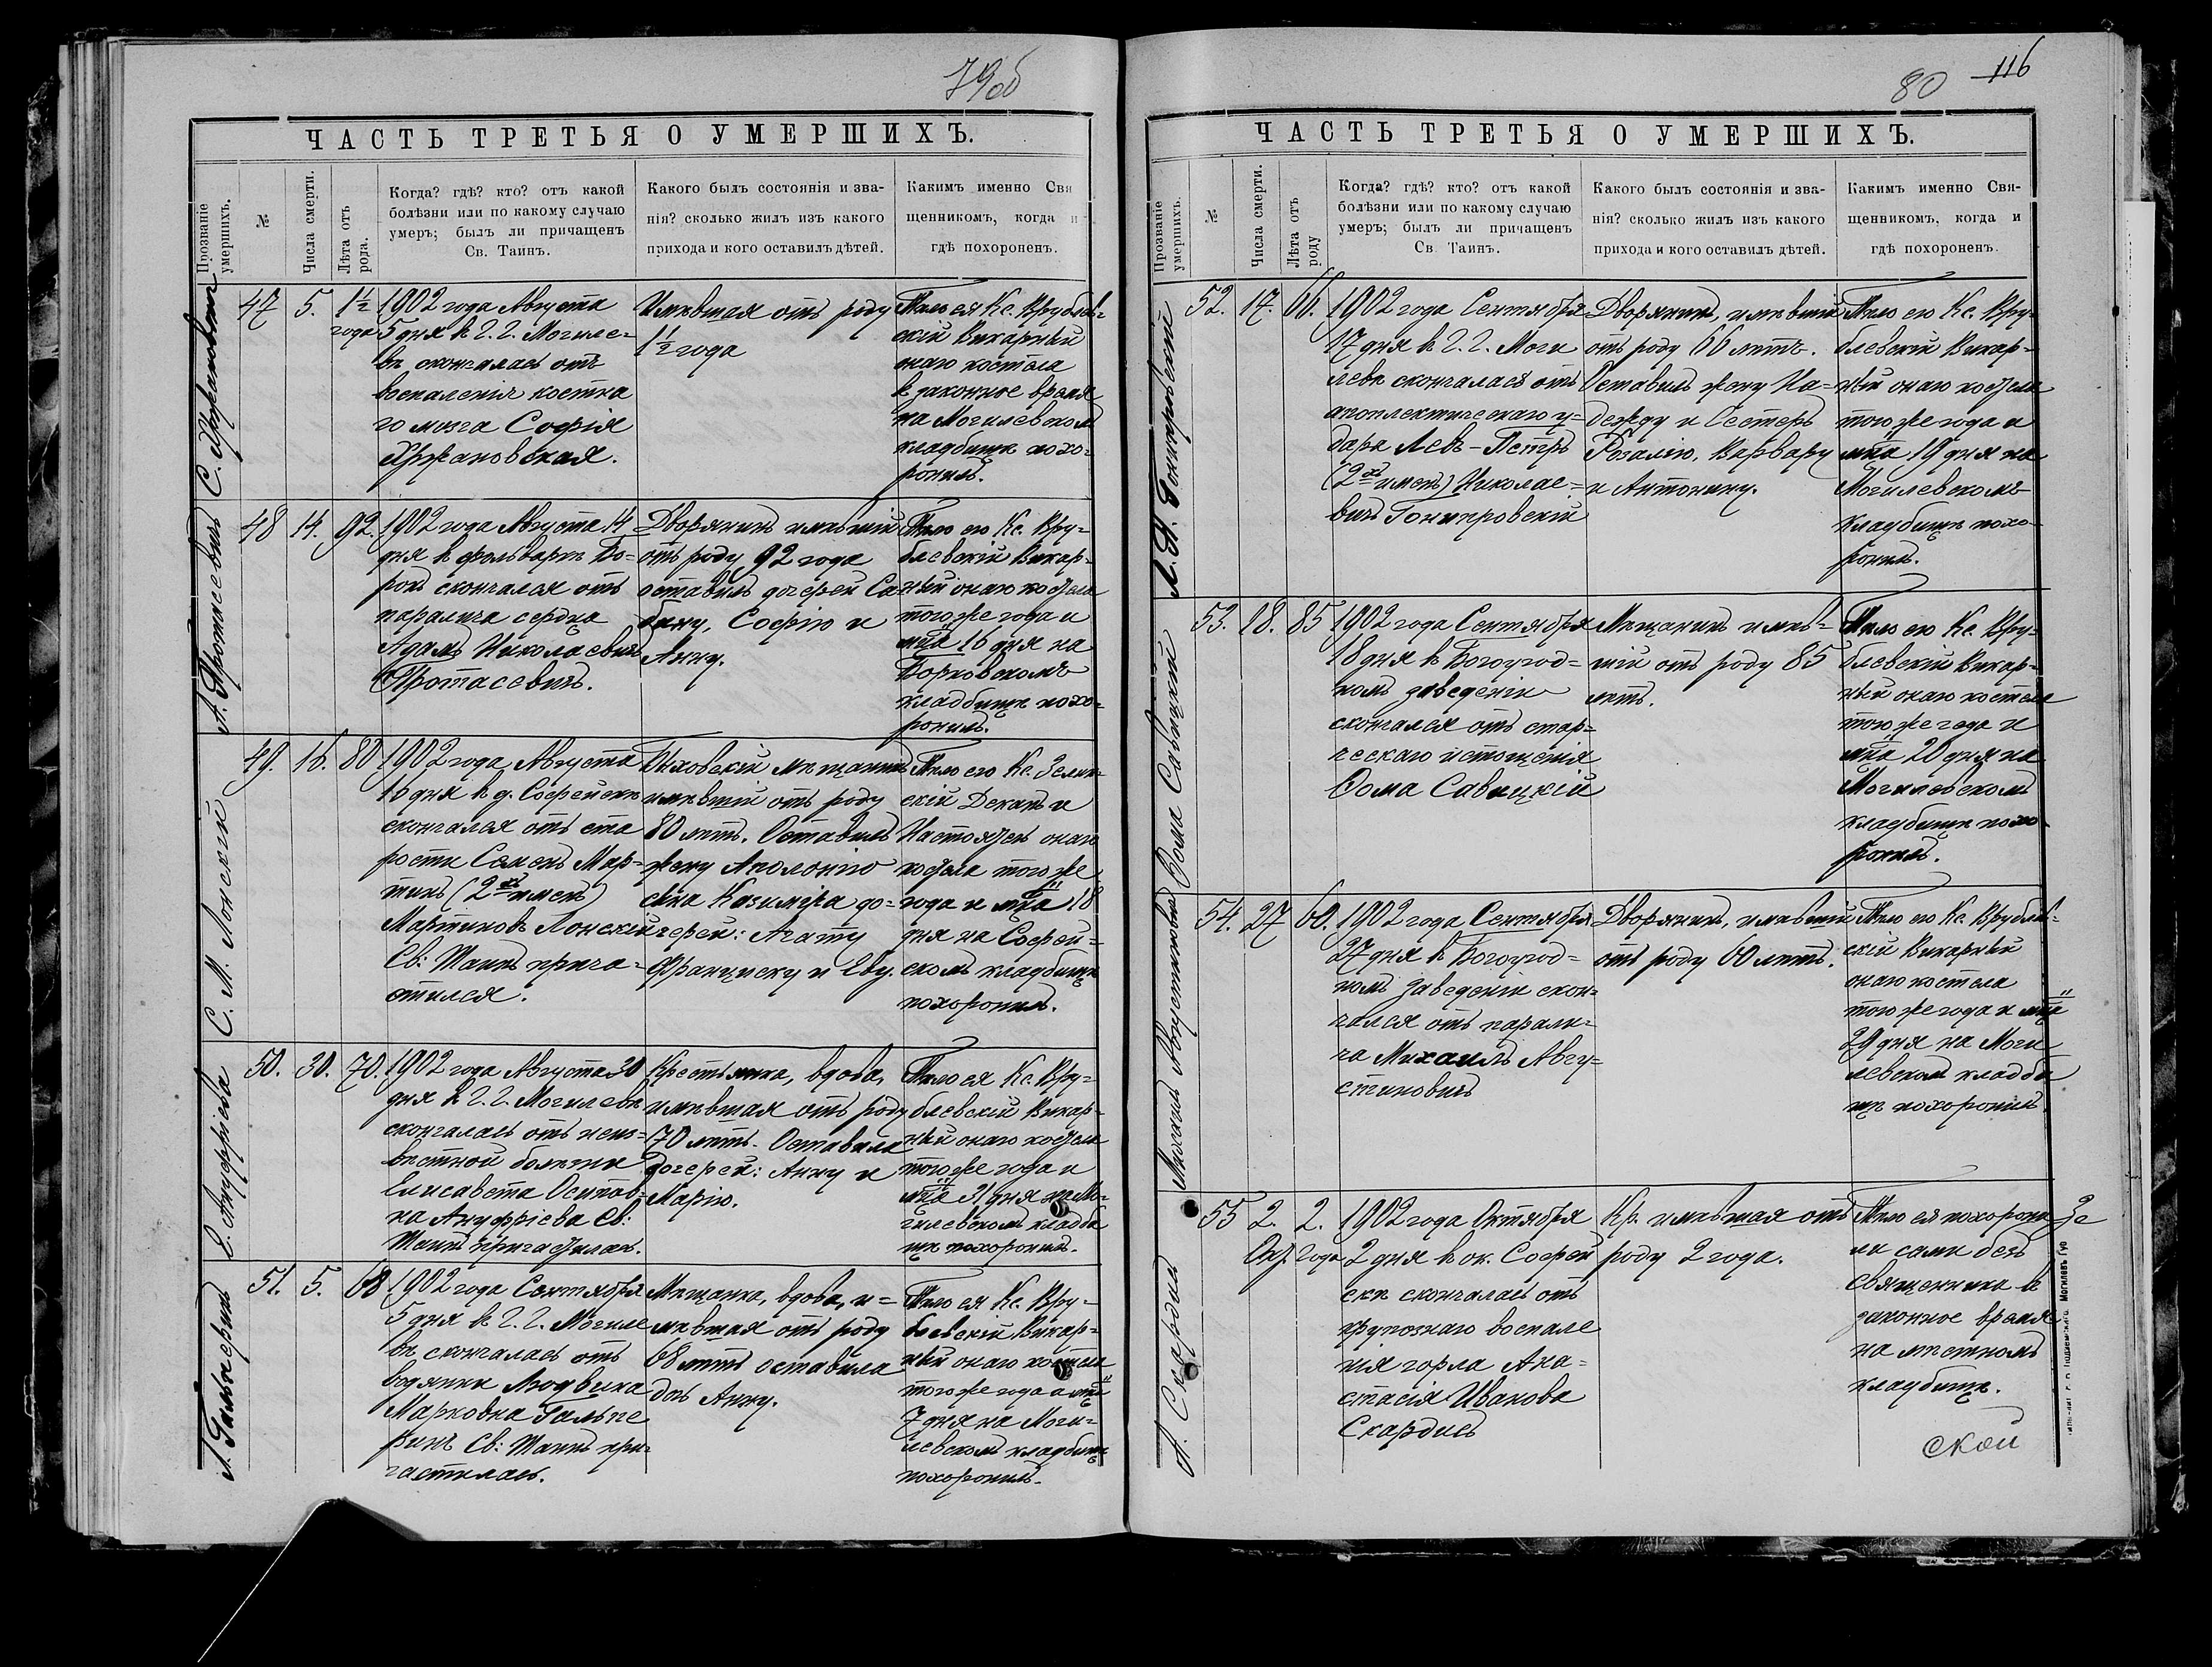 79об
ЧАСТЬ ТРЕТЬЯ О УМЕРШИХЪ.
Прозваніе умершихъ.
№
Числа смерти.
Лѣта отъ рода.
Когда? гдѣ? кто? отъ какой
болѣзни или по какому случаю
умеръ; былъ ли причащенъ
Св. Таинъ.
Какого былъ состоянія и зва-
нія? сколько жилъ изъ какого
прихода и кого оставилъ дѣтей.
Какимъ именно Свя
щенникомъ, когда и
гдѣ похороненъ.
47
5.
1½
года
1902 года Августа
5 дня в Г. Г. Могиле-
вѣ скончалась отъ
воспаленія костна
го мозга Софія
Хржановская.
Имѣвшая отъ роду
1½ года
Тѣло ея Кс. Врублев-
скій Викарный
онаго костела
в законное время
на Могилевскомъ
кладбищѣ похо-
ронилъ.
А. Протасевичъ
48
14.
92.
1902 года Августа 14
дня в фольваркѣ Бо-
рокъ скончался отъ
паралича сердца
Адамъ Николаевичъ
Протасевичъ.
Дворянинъ имѣвшій
отъ роду 92 года
оставилъ дочерей Са-
бину, Софію и
Анну.
Тѣло его Кс. Вру-
блевскій Викар-
ный онаго костела
того же года и
мца 16 дня на
Борковскомъ
кладбищѣ похо-
ронилъ.
С. М. Лонскій
49.
16.
80
1902 года Августа
16 дня в д. Софейскѣ
скончался отъ ста
рости Семенъ Мар-
тинъ (2хъ именъ)
Мартиновъ Лонскій
Св: Таинъ прича-
стился.
Быховскій мѣщанинъ
имѣвшій отъ роду
80 лѣтъ. Оставилъ
жену Аполонію
сына Казиміра до-
черей: Агату
Франциску и Еву.
Тѣло его Кс. Зелин-
скій Деканъ и
Настоятель онаго
костела того же
года и мца 18
дня на Софей-
скомъ кладбищѣ
похоронилъ.
Е. Ануфріева
50.
30.
70.
1902 года Августа 30
дня в Г. Г. Могилевѣ
скончалась отъ неиз-
вѣстной болѣзни
Елисавета Осипов-
на Ануфріева Св:
Таинъ причастилась.
Крестьянка, вдова,
имѣвшая отъ роду
70 лѣтъ. Оставила
дочерей: Анну и
Марію.
Тѣло ея Кс. Вру-
блевскій Викар-
ный онаго костела
того же года и
мца 31 дня на Мо-
гилевскомъ кладби
щѣ похоронилъ.
Л. Гальперинъ
51.
5.
68
1902 года Сентября
5 дня в Г. Г. Могиле
вѣ скончалась отъ
водянки Людвика
Марковна Гальпе
ринъ Св: Таинъ при-
частилась.
Мѣщанка, вдова, и-
мѣвшая отъ роду
68 лѣтъ оставила
дочь Анну.
Тѣло ея Кс. Вру-
блевскій Викар-
ный онаго костела
того же года и мца
7 дня на Моги-
левскомъ кладбищѣ
похоронилъ.
80
116
ЧАСТЬ ТРЕТЬЯ О УМЕРШИХЪ.
Прозваніе умершихъ.
№
Числа смерти.
Лѣта отъ роду
Когда? гдѣ? кто? отъ какой
болѣзни или по какому случаю
умеръ; былъ ли причащенъ
Св. Таинъ.
Какого былъ состоянія и зва-
нія? сколько жилъ изъ какого
прихода и кого оставилъ дѣтей.
Какимъ именно Свя-
щенникомъ, когда и
гдѣ похороненъ.
52.
17.
66.
1902 года Сентября
17 дня в Г. Г. Моги
левѣ скончался отъ
апоплектическаго у-
дара Левъ-Петръ
(2хъ именъ) Николае-
вичъ Гонипровскій
Дворянинъ, имѣвшій
отъ роду 66 лѣтъ.
Оставилъ жену На-
дежду и Сестеръ
Розалію, Варвару
и Антонину.
Тѣло его Кс. Вру-
блевскій Викар-
ный онаго костела
того же года и
мца 19 дня на
Могилевскомъ
кладбищѣ похо-
ронилъ.
Ѳома Савицкій
53.
18.
85
1902 года Сентября
18 дня в Богоугод-
номъ заведеніи
скончался отъ стар-
ческаго истощенія
Ѳома Савицкій
Мѣщанинъ имѣв-
шій отъ роду 85
лѣтъ.
Тѣло его Кс. Вру-
блевскій Викар-
ный онаго костела
того же года и
мца 20 дня на
Могилевскомъ
кладбищѣ похо-
ронилъ.
Михаилъ Августиновичъ
54.
27
60.
1902 года Сентября
27 дня в Богоугод-
номъ заведеніи скон-
чался отъ парали-
ча Михаилъ Авгу-
стиновичъ
Дворянинъ, имѣвшій
отъ роду 60 лѣтъ.
Тѣло его Кс. Врублев-
скій Викарный
онаго костела
того же года и мца
29 дня на Моги
левскомъ кладби
щѣ похоронилъ.
А. Скардисъ
55
2.
Окт.
2.
года
1902 года Октября
2 дня в ок. Софей
скѣ скончалась отъ
крупознаго воспале
нія горла Ана-
стасія Иванова
Скардисъ
Кр. имѣвшая отъ
роду 2 года.
Тѣло ея похорони
ли сами безъ
священника в
законное время
на мѣстномъ
кладбищѣ.
Зе
ской